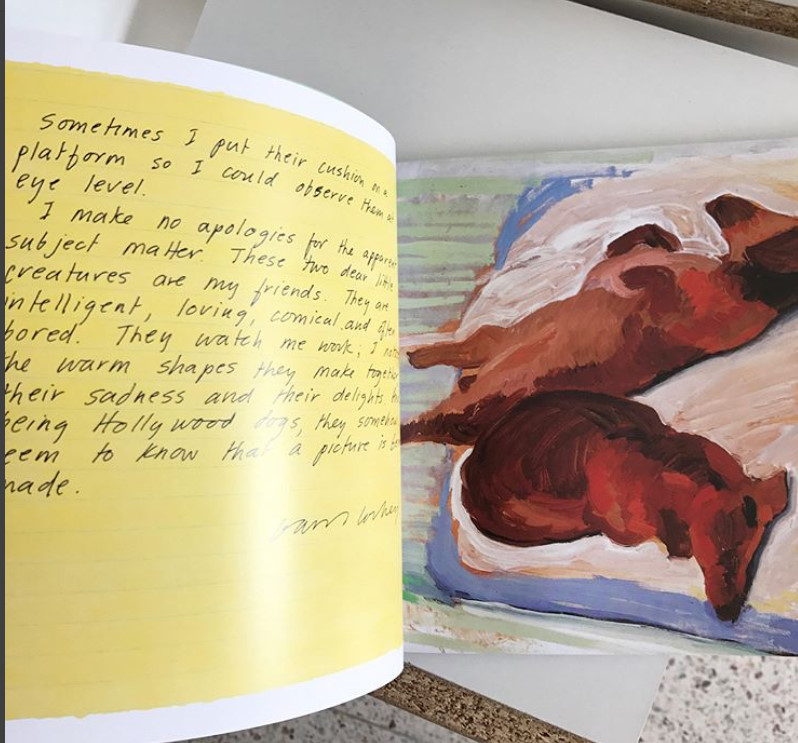 Sometimes I put their cushion on a
platform so I could observe them at
eye level.
I make no apologies for the apparent
subject matter. These two dear little
creatures are my friends. They are
intelligent, loving, comical and often
bored. They watch me work; I
the warm shapes they make together
their sadness and their delights
being Hollywood dogs, they somehow
seem to know that a picture is
made.